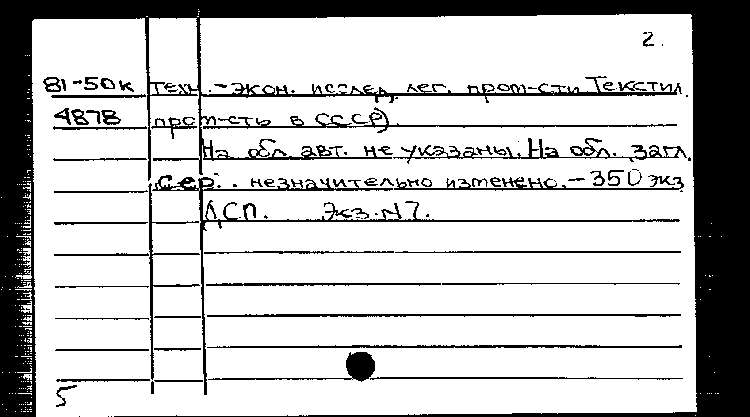 2.
81-50к техн.-экон. исслед. лег. пром-сти Текстил.
4878 пром-сть в СССР).
На обл. авт. не указаны. На обл. загл.
сер. незначительно изменено. - 350 экз
ДСП. Экз. N 7.
5